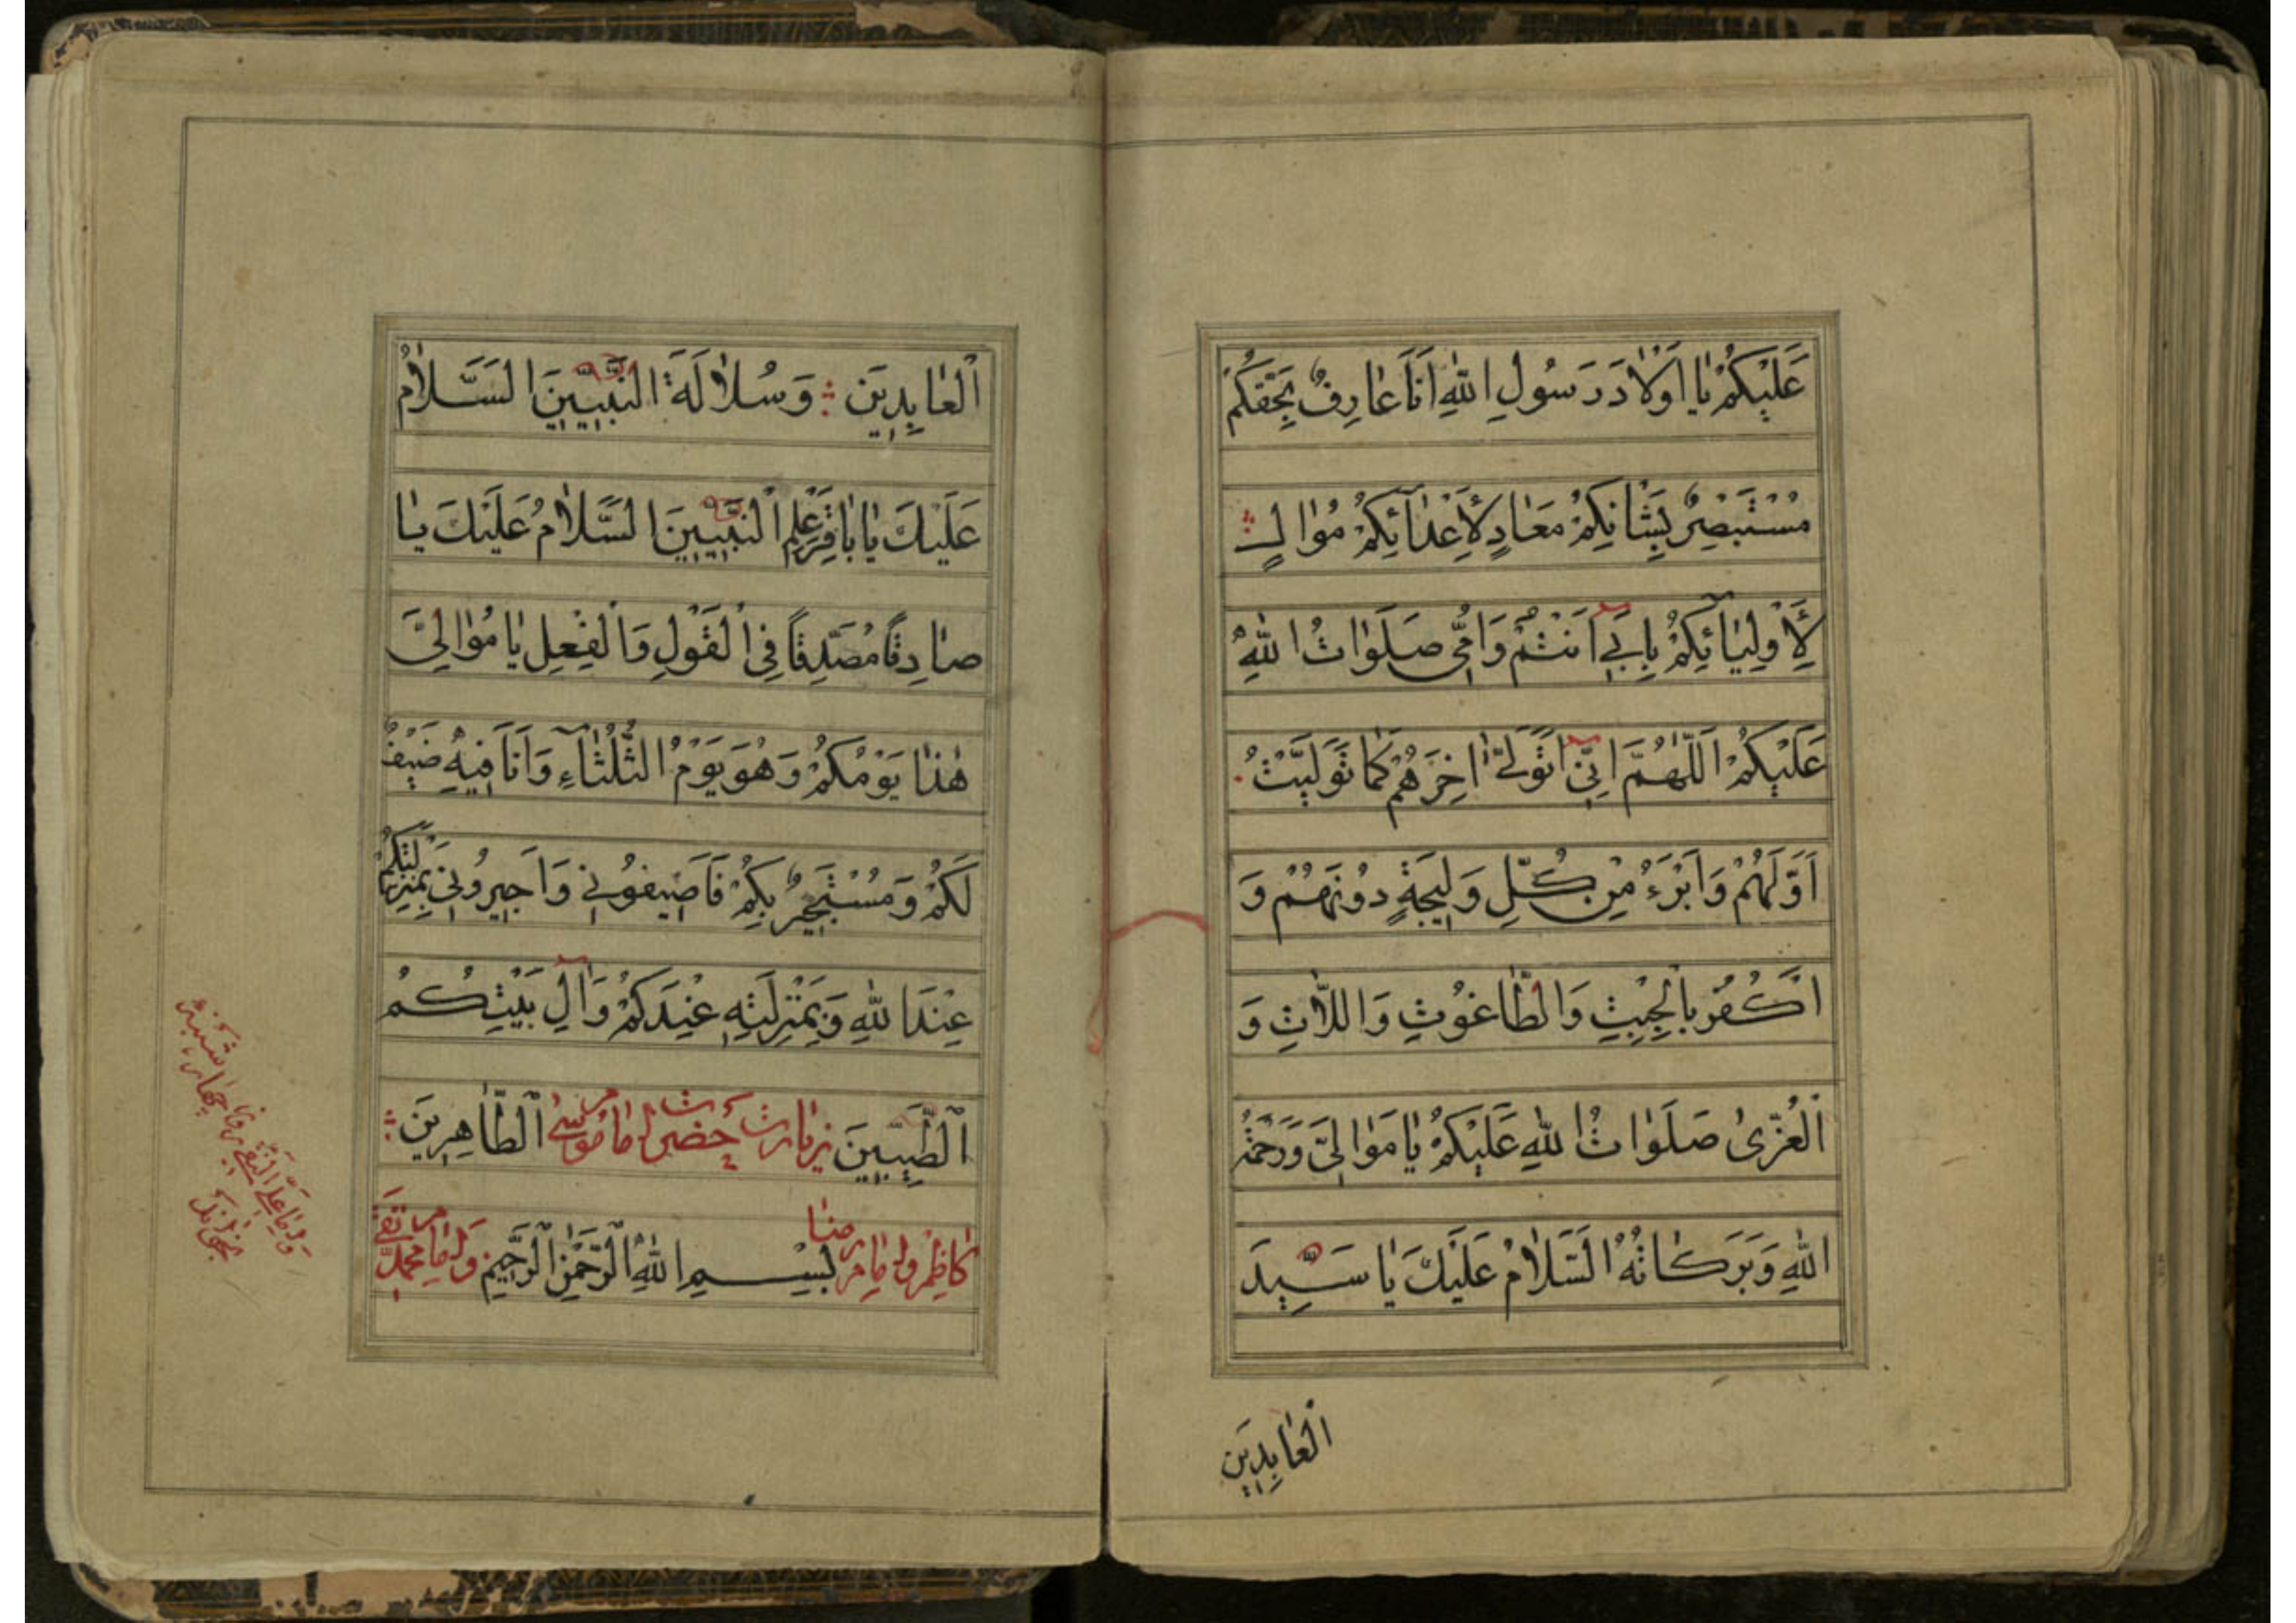 عَلَيْكُمْ يٰا اَوْلٰادَ رَسُولِ اللّٰهِ اَنَا عٰارِفٌ بِحَقِّكُمْ
مُسْتَبْصِرٌ بِشَانِكُمْ مَعٰادٍ لِأَعْدٰآئِكُمْ مُوٰالٍ
لِأَوْلِيٰآئِكُمْ بِاَبِي اَنْتُمْ وَاُمّى صَلَوٰاتُ اللّٰهِ
عَلَيْكُمْ اَللّٰهُمَّ اِنّي اَتَوَلّٰى اٰخِرَهُمْ كَمٰا تَوَلَّيْتُ
اَوَّلَهُمْ وَاَبْرَءُ مِنْ كُلِّ وَلِيجَةٍ دُونَهُمْ وَ
اَكْفُرُ بِالْجِبْتِ وَالطّٰاغُوتِ وَاللّٰاتِ وَ
الْعُزّىٰ صَلَوٰاتُ اللّٰهِ عَلَيْكُمْ يٰا مَوٰالِيَّ وَرَحْمَةُ
اللّٰهِ وَبَرَكٰاتُهُ اَلسَّلٰامُ عَلَيْكَ يٰا سَيِّدَ
الْعٰابِدِينَ
الْعٰابِدِينَ وَسُلٰالَةَ النَّبِيّينَ السَّلٰامُ
عَلَيْكَ يٰا بٰاقِرَ عِلْمِ النَّبِيّينَ السَّلٰامُ عَلَيْكَ يٰا
صٰادِقًا مُصَدِّقًا فِي الْقَوْلِ وَالْفِعْلِ يٰا مُوٰالِيَّ
هٰذٰا يَوْمُكُمْ وَهُوَ يَوْمُ الثُّلٰثٰآءِ وَاَنَا فِيهِ ضَيْفٌ
لَكُمْ وَمُسْتَجِيرٌ بِكُمْ فَاَضِيفُونِي وَاَجِيرُونِي بِمَنْزِلَتِكُمْ
عِنْدَ اللّٰهِ وَبِمَنْزِلَتِهِ عِنْدَكُمْ وَاٰلِ بَيْتِكُمُ
الطَّيِّبِينَ زيارت حضرت امام موسى الطّٰاهِرِينَ
كاظم و امام رضا بِسْمِ اللّٰهِ الرَّحْمٰنِ الرَّحِيمِ و امام محمد تقى
و امام على النقى چهار شنبه
بخواند